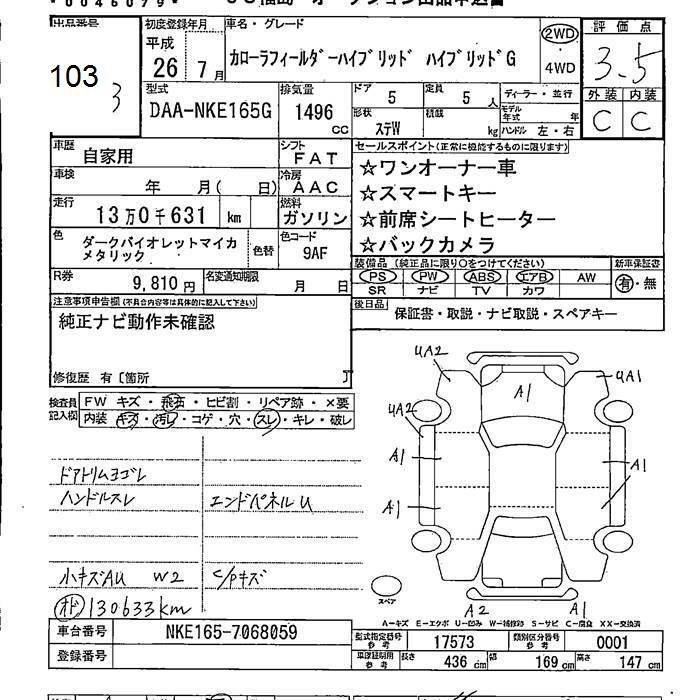 0046079
出品番号
103
3
初度登録年月
平成
26年 7月
車名・グレード
カローラフィールダーハイブリッド ハイブリッドG
2WD
4WD
評価点
3.5
外装 内装
C C
型式
DAA-NKE165G
排気量
1496 cc
ドア 5
定員 5 人
形状 ステW
積載 kg
ディーラー・並行
モデル年式 年
ハンドル 左・右
車歴
自家用
シフト
FAT
車検 年 月( 日)
冷房
AAC
走行
13万0千631 km
燃料
ガソリン
色
ダークバイオレットマイカメタリック
色替
色コード
9AF
セールスポイント(正常に機能するものに限ります)
☆ワンオーナー車
☆スマートキー
☆前席シートヒーター
☆バックカメラ
装備品(純正品に限り○をつけてください)
新車保証書
PS PW ABS エアB AW
SR ナビ TV カワ
有・無
R券
9,810円
名変通知期限
月 日
後日品
保証書・取説・ナビ取説・スペアキー
注意事項申告欄(不具合内容等は具体的に記入して下さい)
純正ナビ動作未確認
修復歴 有〔箇所 〕
検査員記入欄
FW キズ・飛石・ヒビ割・リペア跡・×要
内装 キズ・汚レ・コゲ・穴・スレ・キレ・破レ
ドアトリムヨゴレ
ハンドルスレ
エンドパネルU
小キズAU W2
C/Pキズ
オド 130633km
UA2
A1
UA1
UA2
A1
A1
A1
A2
A1
スペア
A-キズ E-エクボ U-凹み W-補修跡 S-サビ C-腐食 XX-交換済
車台番号
NKE165-7068059
登録番号
型式指定番号 参考
17573
類別区分番号 参考
0001
車庫証明用 参考
長さ 436 cm
幅 169 cm
高さ 147 cm